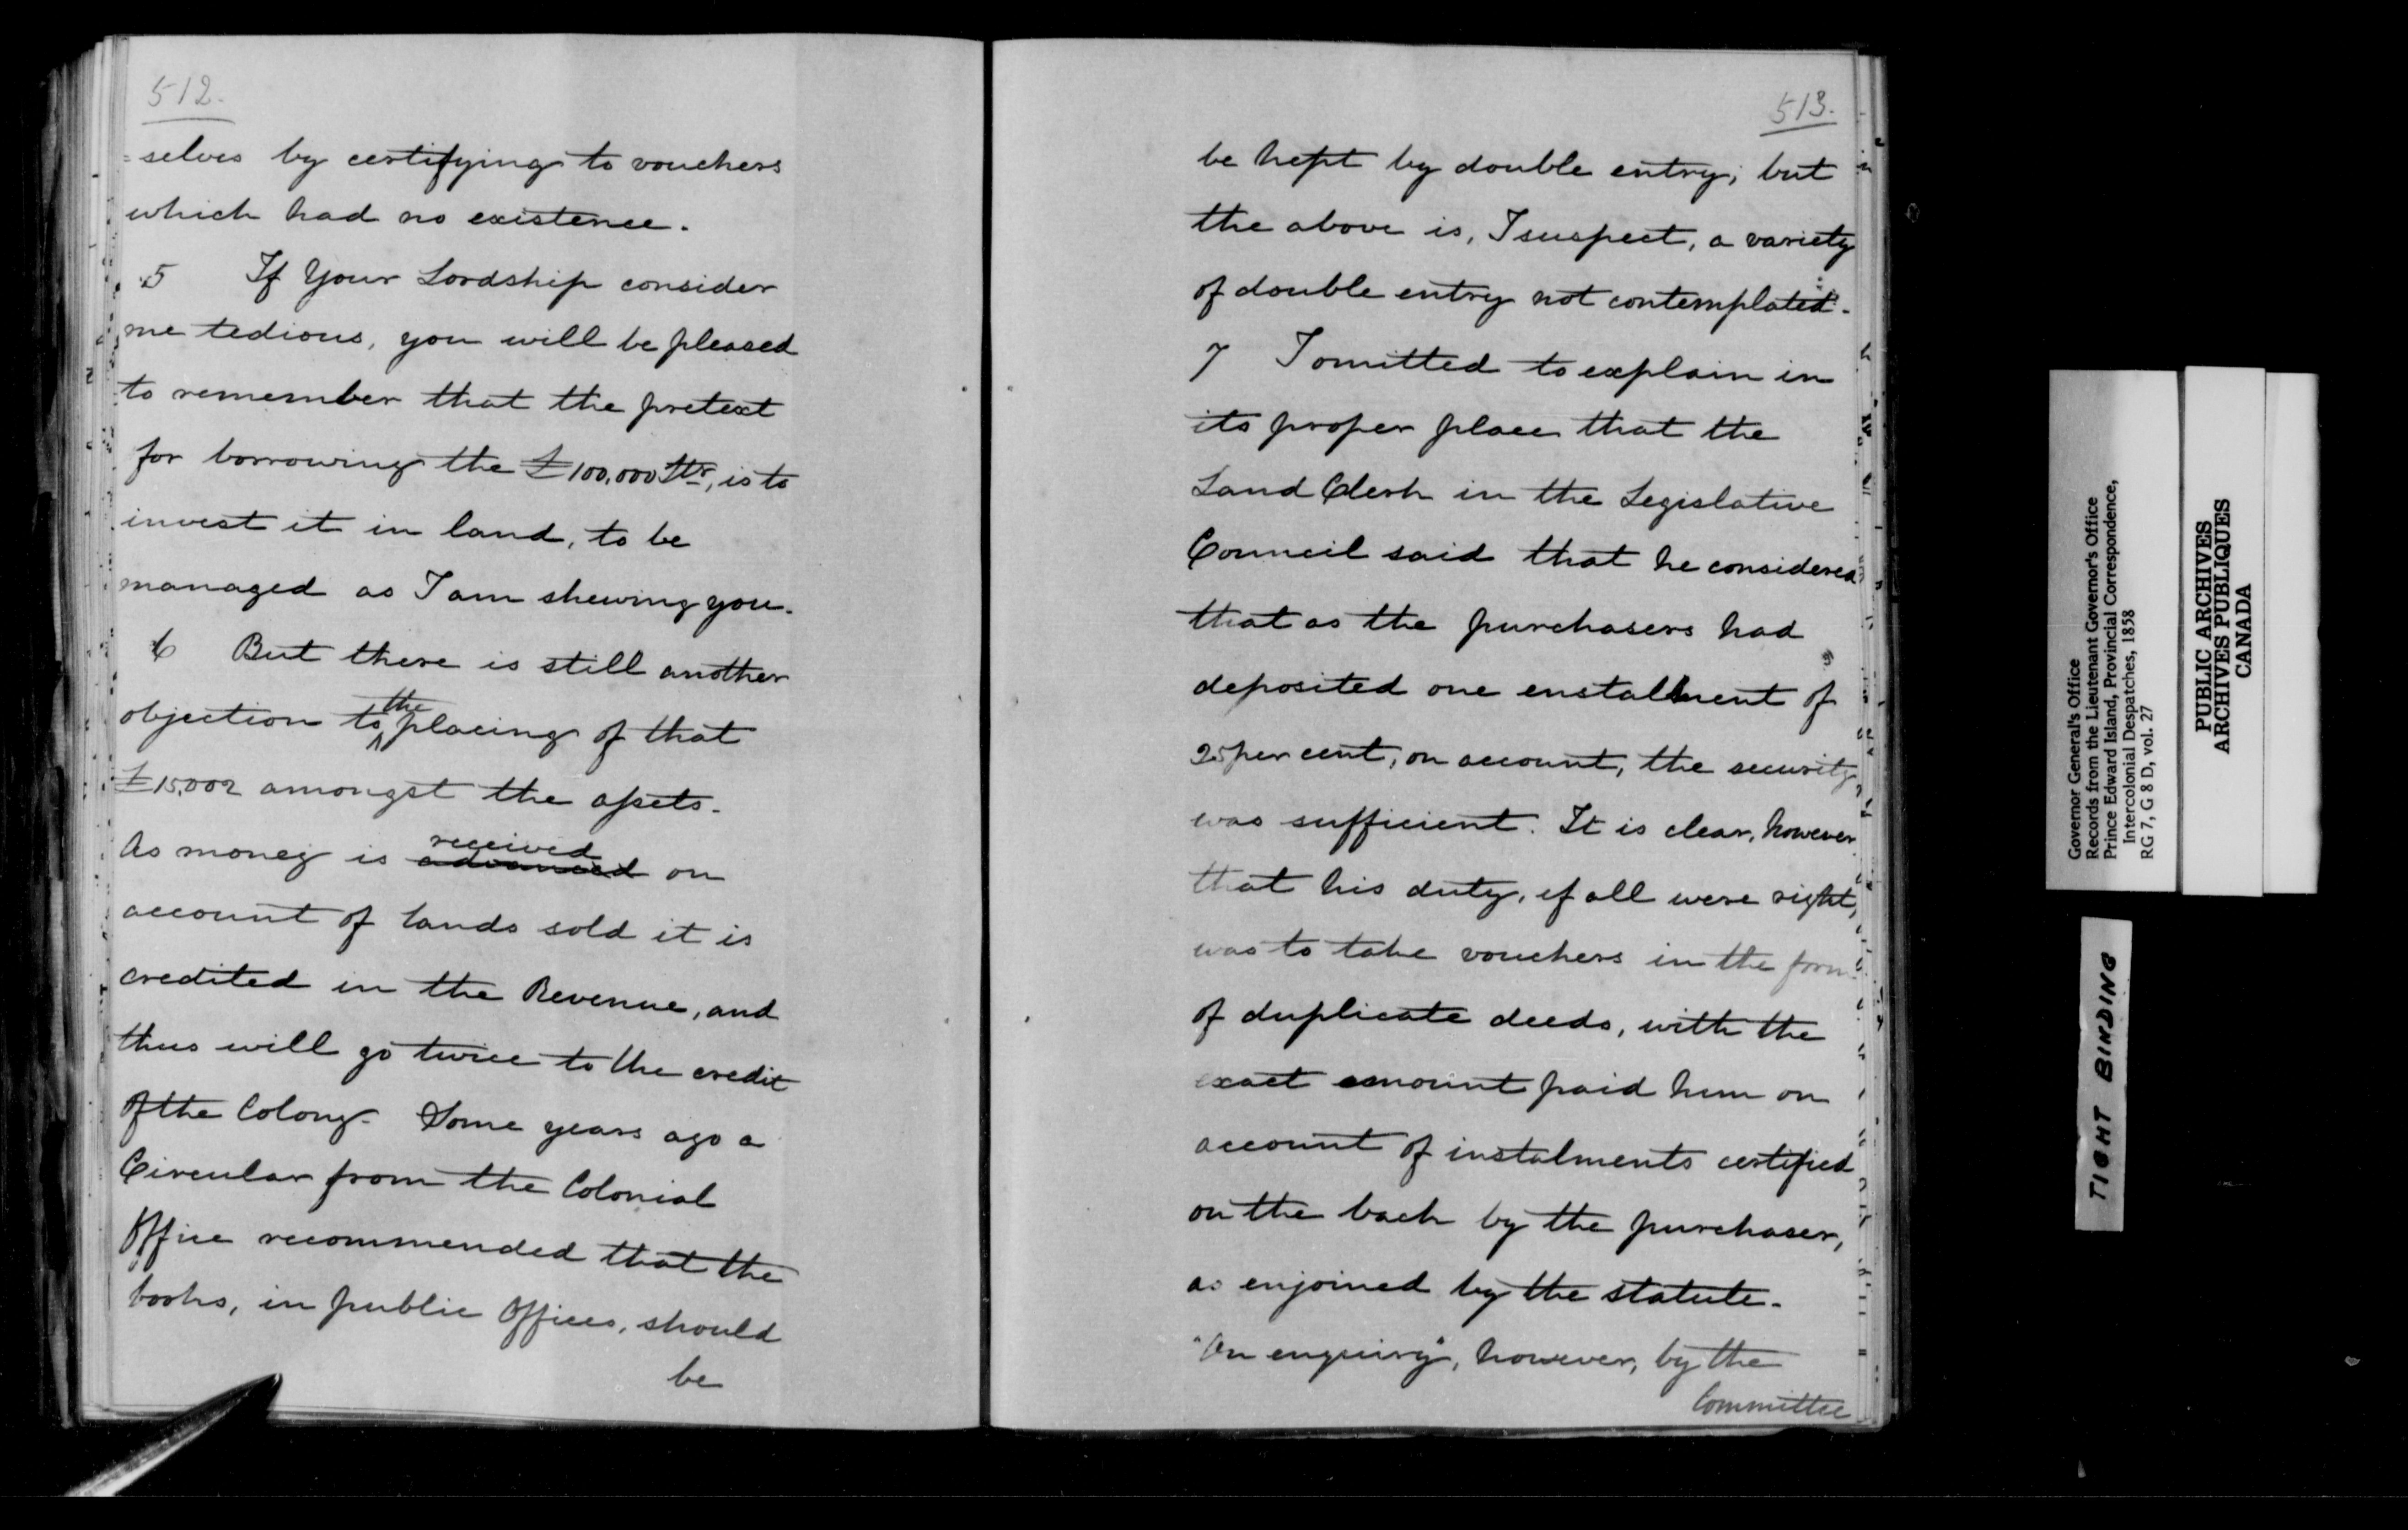 512.
=selves by certifying to vouchers
which had no existence.
5 If Your Lordship consider
me tedious, you will be pleased
to remember that the pretext
for borrowing the £100,000 Str, is to
invest it in land, to be
managed as I am shewing you.
6 But there is still another
objection to the placing of that
£15,002 amongst the assets.
As money is advanced received on
account of lands sold it is
credited in the Revenue, and
thus will go twice to the credit
of the Colony. Some years ago a
Circular from the Colonial
Office recommended that the
books, in public Offices, should
be
513.
be kept by double entry; but
the above is, I suspect, a variety
of double entry not contemplated.
7 I omitted to explain in
its proper place that the
Land Clerk in the Legislative
Council said that he considered
that as the purchasers had
deposited one enstalment of
25 per cent, on account, the security
was sufficient. It is clear, however
that his duty, if all were right,
was to take vouchers in the form
of duplicate deeds, with the
exact amount paid him on
account of instalments certified
on the back by the purchaser,
as enjoined by the statute.
"On enquiry", however, by the
Committee
Governor General's Office
Records from the Lieutenant Governor's Office
Prince Edward Island, Provincial Correspondence,
Intercolonial Despatches, 1858
RG 7, G 8 D, vol. 27
PUBLIC ARCHIVES
ARCHIVES PUBLIQUES
CANADA
TIGHT BINDING